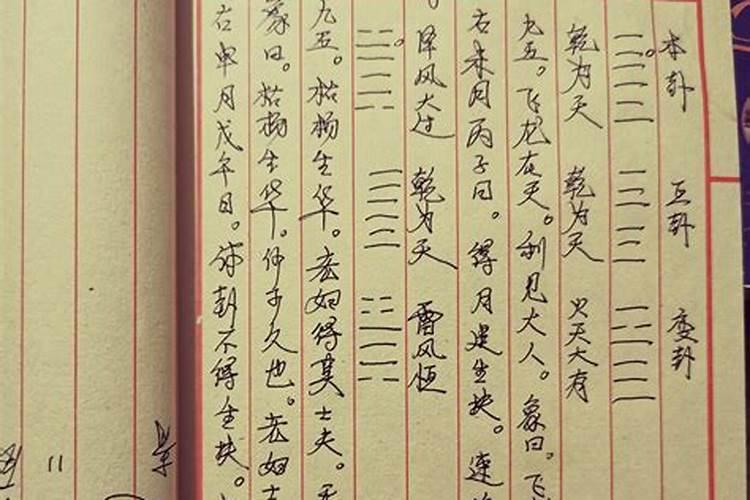 本卦 互卦 变卦
乾为天 乾为天 火天大有
九五。飞龙在天。利见大人。象曰。飞
右未月丙子日。得月建生扶。连
泽风大过 乾为天 雷风恒
九五。枯杨生华。老妇得其士夫。无
象曰。枯杨生华。何可久也。老妇士
右申月戊午日。体卦不得生扶。